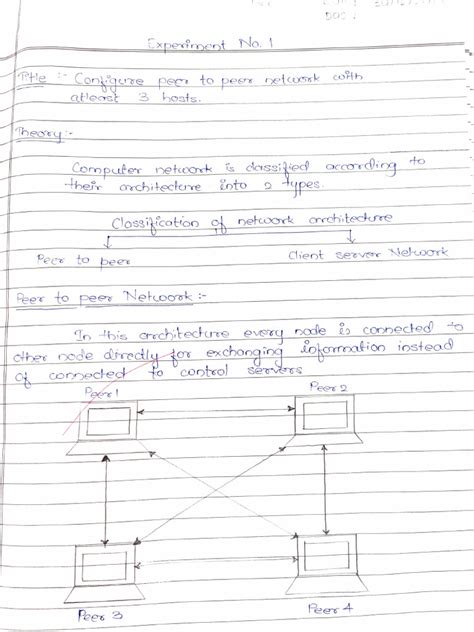 DOS:
Experiment No. 1
Title :- Configure peer to peer network with
atleast 3 hosts.
Theory:-
Computer network is classified according to
their architecture into 2 types.
Classification of network architecture
Peer to peer    Client server Network
Peer to peer Network:-
In this architecture every node is connected to
other node directly for exchanging information instead
of connected to control servers
Peer 1    Peer 2
Peer 3    Peer 4